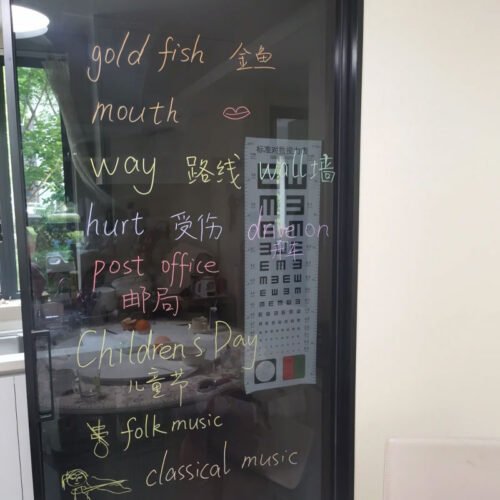 gold fish 金鱼
mouth
标准对数视力表
way 路线 wall 墙
hurt 受伤 drive on
post office
邮局
Children's Day
儿童节
folk music
classical music